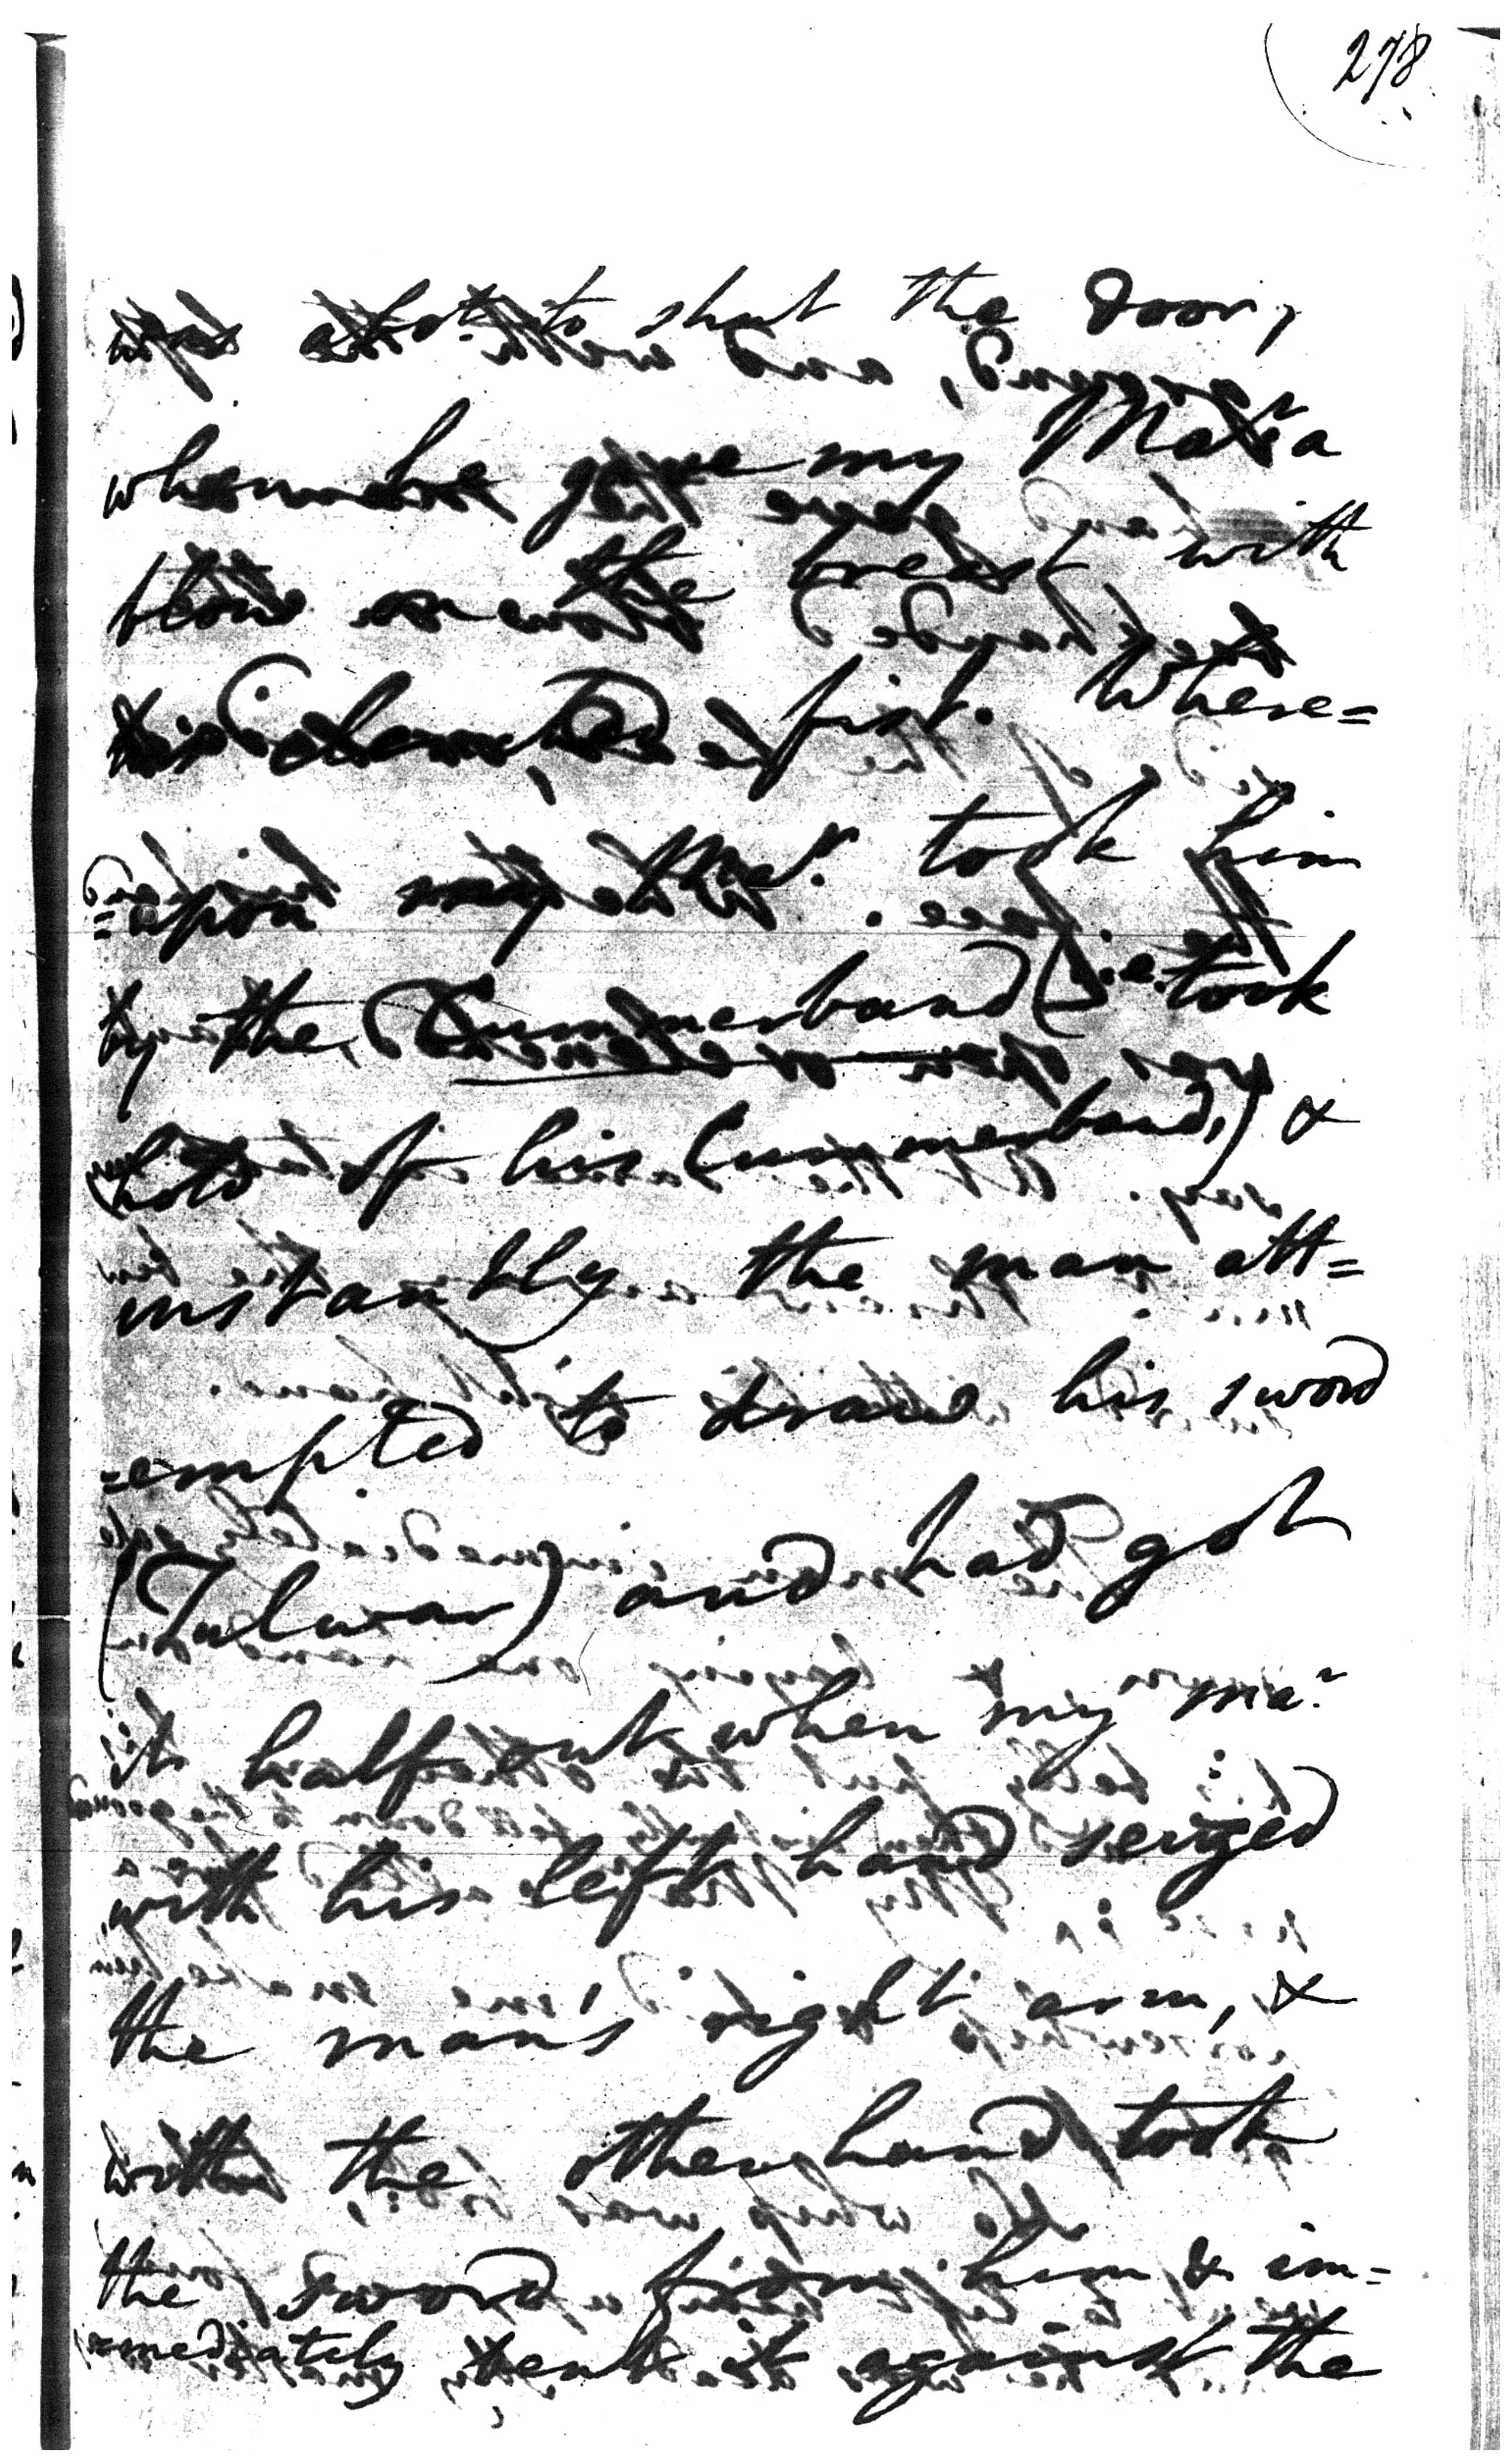 278
was about to shut the door,
when he gave my Mas.r a
blow on the breast with
his clenched fist. Where=
=upon my Mas.r took him
by the Cummerband (i.e. took
hold of his Cummerband,) &
instantly the man att=
=empted to draw his sword
(Tulwar) and had got
it half out when my ma.r
with his left hand seized
the man's right arm, &
with the other hand took
the sword from him & im=
=mediately bent it against the